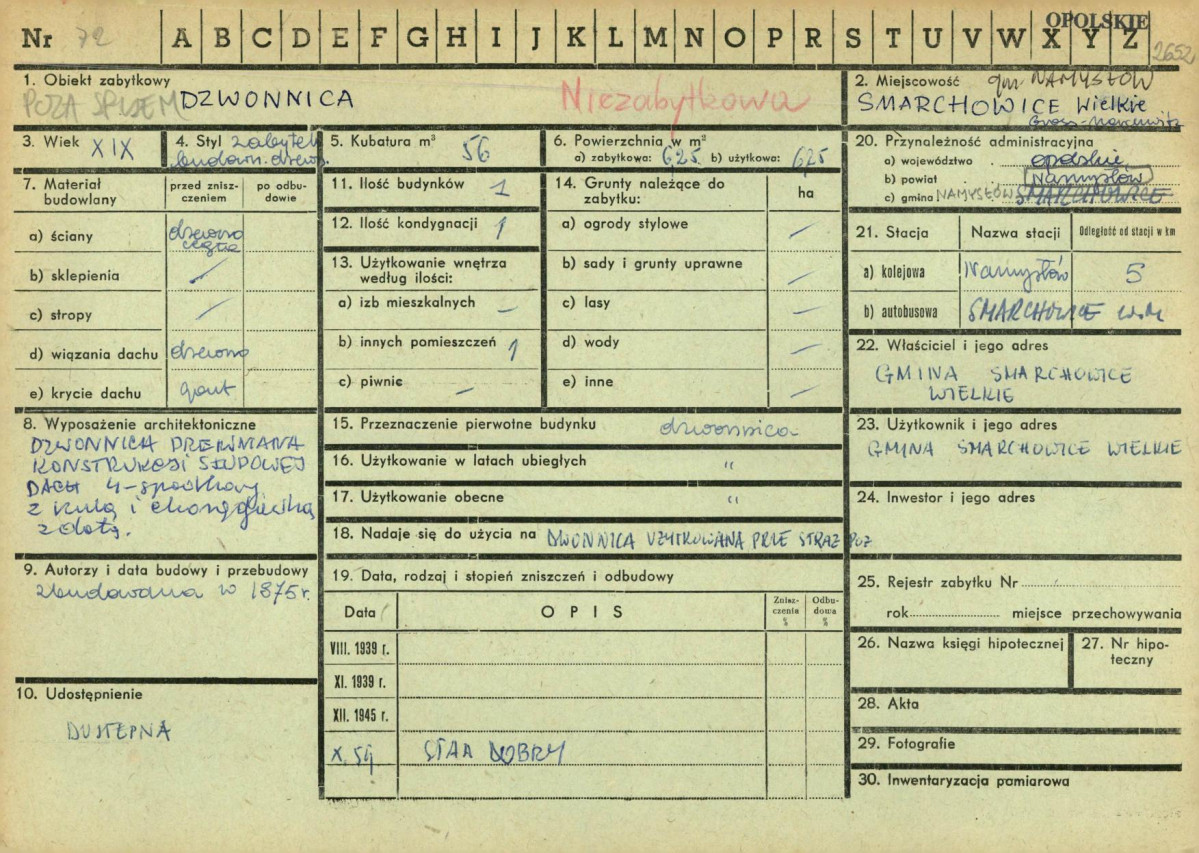 OPOLSKIE
Nr 72 A B C D E F G H I J K L M N O P R S T U V W X Y Z 2652
1. Obiekt zabytkowy
POZA SPISEM DZWONNICA
Niezabytkowa
2. Miejscowość gm NAMYSŁÓW
SMARCHOWICE Wielkie
3. Wiek XIX
4. Styl zabytek
budown. drewn.
5. Kubatura m³ 56
6. Powierzchnia w m²
a) zabytkowa: 6,25 b) użytkowa: 6,25
7. Materiał budowlany
przed zniszczeniem
po odbudowie
a) ściany drewno
b) sklepienia /
c) stropy /
d) wiązania dachu drewno
e) krycie dachu gont
8. Wyposażenie architektoniczne
DZWONNICA DREWNIANA
KONSTRUKCJI SŁUPOWEJ
DACH 4-spadkowy
z kulą i chorągiewką
złotą.
9. Autorzy i data budowy i przebudowy
zbudowana w 1875 r.
10. Udostępnienie
DOSTĘPNA
11. Ilość budynków 1
12. Ilość kondygnacji 1
13. Użytkowanie wnętrza według ilości:
a) izb mieszkalnych –
b) innych pomieszczeń 1
c) piwnic –
14. Grunty należące do zabytku:
ha
a) ogrody stylowe –
b) sady i grunty uprawne –
c) lasy –
d) wody –
e) inne –
15. Przeznaczenie pierwotne budynku dzwonnica
16. Użytkowanie w latach ubiegłych "
17. Użytkowanie obecne "
18. Nadaje się do użycia na DWONNICA UŻYTKOWANA PRZE STRAŻ POŻ
19. Data, rodzaj i stopień zniszczeń i odbudowy
Data
OPIS
Zniszczenia %
Odbudowa %
VIII. 1939 r.
XI. 1939 r.
XII. 1945 r.
X. 59 STAN DOBRY
20. Przynależność administracyjna
a) województwo opolskie
b) powiat Namysłów
c) gmina NAMYSŁÓW SMARCHOWICE
21. Stacja
Nazwa stacji
Odległość od stacji w km
a) kolejowa Namysłów 5
b) autobusowa SMARCHOWICE
22. Właściciel i jego adres
GMINA SMARCHOWICE
WIELKIE
23. Użytkownik i jego adres
GMINA SMARCHOWICE WIELKIE
24. Inwestor i jego adres
25. Rejestr zabytku Nr
rok miejsce przechowywania
26. Nazwa księgi hipotecznej
27. Nr hipoteczny
28. Akta
29. Fotografie
30. Inwentaryzacja pomiarowa